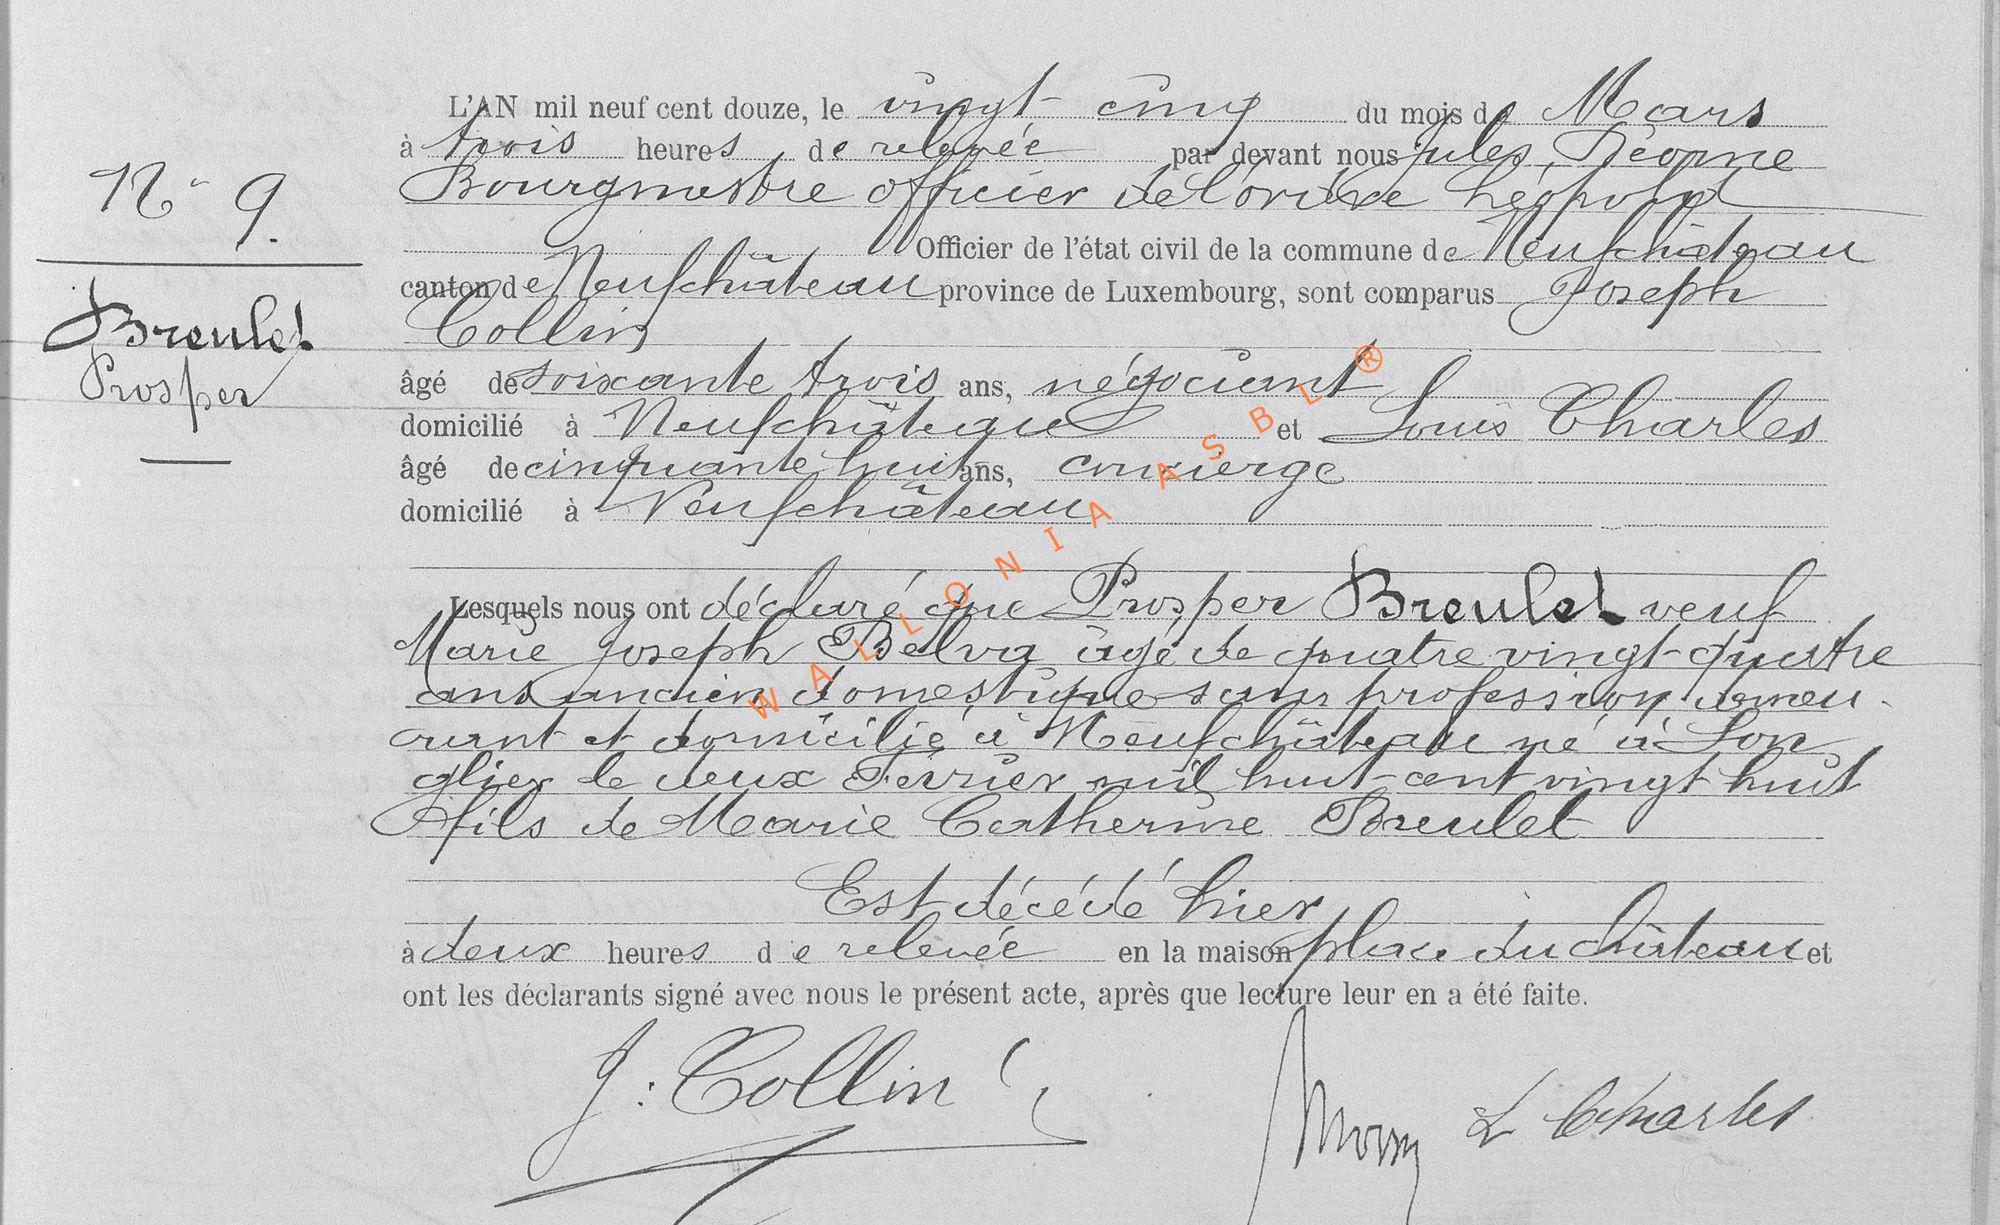 L'AN mil neuf cent douze, le vingt cinq du mois de Mars
à trois heures de relevée par devant nous jules
Bourgmestre officier de l'ordre Léopold
Officier de l'état civil de la commune de Neufchâteau
canton de Neufchâteau province de Luxembourg, sont comparus Joseph
Collin
âgé de soixante trois ans, négociant
domicilié à Neufchâteau et Louis Charles
âgé de cinquante huit ans, concierge
domicilié à Neufchâteau
Lesquels nous ont déclaré que Prosper Breulet veuf
Marie Joseph Belva âgé de quatre vingt-quatre
ans ancien domestique sans profession demeu-
rant et domicilié à Neufchâteau né à Lon
glier le deux Février mil huit-cent vingt huit
fils de Marie Catherine Breulet
Est décédé hier
à deux heures de relevée en la maison place du château et
ont les déclarants signé avec nous le présent acte, après que lecture leur en a été faite.
N° 9.
Breulet
Prosper
J. Collin
L Charles
WALLONIA ASBL ®